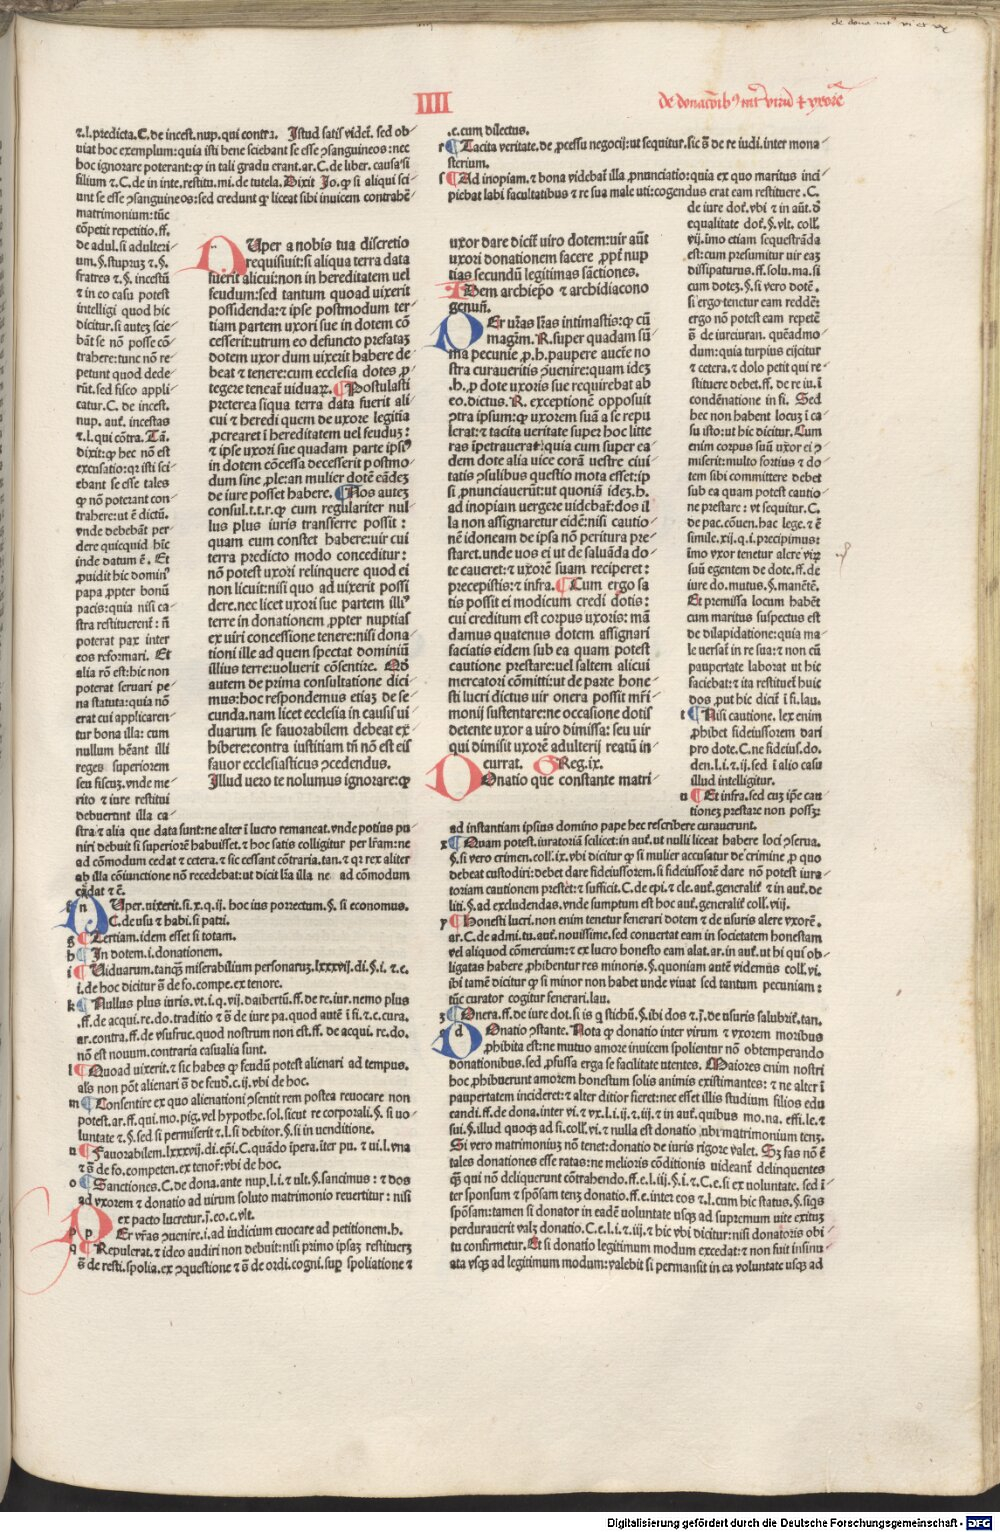 IIII
de donacōib⁹ int̄ virū ⁊ vxorē
⁊.l.predicta.C.de incest.nup.qui contra. Istud satis videt̄. sed ob
uiat hoc exemplum:quia isti bene sciebant se esse ꝯsanguineos:nec
hoc ignorare poterant:ꝙ in tali gradu erant.ar.C.de liber. causa si
filium ⁊.C.de in inte.restitu.mi.de tutela. Dixit Jo.ꝙ si aliqui sci
unt se esse ꝯsanguineos:sed credunt ꝙ liceat sibi inuicem contrahē
matrimonium:tūc
cōpetit repetitio.ff.
de adul.si adulteri
um.§.stuprū ⁊.§.
fratres ⁊.§. incestū
⁊ in eo casu potest
intelligi quod hic
dicitur.si autez scie
bāt se nō posse cō
trahere:tunc nō re
petunt quod dede
rūt.sed fisco appli
catur.C. de incest.
nup. aut. incestas
⁊.l.qui cōtra. Tā.
dixit:ꝙ hec nō est
excusatio:qr isti sci
ebant se esse tales
ꝙ nō poterant con
trahere:ut ē dictū.
vnde debebāt per
dere quicquid hīc
inde datum ē. Et
ꝓuidit hic domin⁹
papa ꝓpter bonū
pacis:quia nisi ca
stra restituerent̄: ñ
poterat pax inter
eos reformari. Et
alia rō est:hic non
poterat seruari pe
na statuta:quia nō
erat cui applicaren
tur bona illa: cum
nullum hēant illi
reges superiorem
seu fiscuz.vnde me
rito ⁊ iure restitui
debuerunt illa ca
stra ⁊ alia que data sunt:ne alter ī lucro remaneat.vnde potius pu
niri debuit si superiorē habuisset.⁊ hoc satis colligitur per lr̄am:ne
ad cōmodum cedat ⁊ cetera.⁊ sic cessant cōtraria.tan.⁊ qr rex aliter
ab illa cōiunctione nō recedebat:ut dicit lr̄a illa ne ad cōmodum
cedat ⁊ c̄.
NUper a nobis tua discretio
requisuit:si aliqua terra data
fuerit alicui:non in hereditatem uel
feudum:sed tantum quoad uixerit
possidenda:⁊ ipse postmodum ter
tiam partem uxori sue in dotem cō
cesserit:utrum eo defuncto prefataz
dotem uxor dum uixerit habere de
beat ⁊ tenere:cum ecclesia dotes ꝓ
tegere teneat̄ uiduaꝝ. ¶Postulasti
preterea siqua terra data fuerit ali
cui ⁊ heredi quem de uxore legitīa
ꝓcrearet ī hereditatem uel feuduz:
⁊ ipse uxori sue quadam parte ipsi⁹
in dotem cōcessa decesserit postmo
dum sine ꝓle:an mulier dotē eādez
de iure posset habere. ¶Nos autez
consul.t.t.r.ꝙ cum regulariter nul
lus plus iuris transferre possit :
quam eum constet habere:uir cui
terra predicto modo conceditur:
nō potest uxori relinquere quod ei
non licuit:nisi quo ad uixerit possi
dere.nec licet uxori sue partem illi⁹
terre in donationem ꝓpter nuptias
ex uiri concessione tenere:nisi dona
tioni ille ad quem spectat dominiū
illius terre:uoluerit cōsentire. Ad
autem de prima consultatione dici
mus:hoc respondemus etiaz de se
cunda.nam licet ecclesia in causis ui
duarum se fauorabilem debeat ex
hibere:contra iustitiam tn̄ nō est eis
fauor ecclesiasticus ꝯcedendus.
Illud uero te nolumus ignorare:ꝙ
n NUper.uixerit.si.x.q.ij.hoc ius porrectum.§.si economus.
C.de usu ⁊ habi.si patri.
g ¶Tertiam.idem esset si totam.
h ¶In dotem.i.donationem.
i ¶Uiduarum.tanꝗ̄ miserabilium personaruz.lxxxvij.di.§.i.⁊.c.
i.de hoc dicitur s̄ de fo.compe.ex tenore.
k ¶Nullus plus iuris.vt.i.q.vij.daibertū.ff.de re.iur.nemo plus
.ff.de acqui.re do.traditio ⁊ s̄ de iure pa.quod autē ī fi.⁊.c.cura.
ar.contra.ff.de vsufruc.quod nostrum non est.ff.de acqui.re.do.
nō est nouum.contraria casualia sunt.
l ¶Quoad uixerit.⁊ sic habes ꝙ feudū potest alienari ad tempus.
als non pōt alienari s̄ de feud̄.c.ij.vbi de hoc.
m ¶Consentire ex quo alienationi ꝯsentit rem postea reuocare non
potest.ar.ff.qui.mo.pig.vel hypothe.sol.sicut re corporali.§.si uo
luntate ⁊.§.sed si permiserit ⁊.l.si debitor.§.si in uenditione.
n ¶Fauorabilem.lxxxvij.di.ep̄i.C.quādo īpera.īter pu.⁊ ui.l.vna
⁊ s̄ de fo.competen.ex tenor̄:vbi de hoc.
o ¶Sanctiones.C.de dona.ante nup.l.i.⁊ ult.§.sancimus : ⁊ dos
ad vxorem ⁊ donatio ad uirum soluto matrimonio reuertitur : nisi
ex pacto lucretur.j.eo.c.vlt.
p PEr vr̄as ꝯuenire.i.ad iudicium euocare ad petitionem.h.
q ¶Repulerat.⁊ ideo audiri non debuit:nisi primo ipsaz restituerz
s̄ de resti.spolia.ex ꝯquestione ⁊ s̄ de ordi.cogni.sup̱ spoliatione ⁊
.c.cum dilectus.
r ¶Tacita veritate.de ꝓcessu negocij:ut sequitur.sic s̄ de re iudi.inter mona
sterium.
s ¶Ad inopiam.⁊ bona videbat̄ illa ꝓnunciatio:quia ex quo maritus inci
piebat labi facultatibus ⁊ re sua male uti:cogendus erat eam restituere .C.
de iure dot̄.vbi ⁊ in aut̄.d̄
equalitate dot̄.§.vlt. coll̄.
vij.imo etiam sequestrāda
est:cum presumitur uir eaz
dissipaturus.ff.solu.ma.si
cum dotez.§.si vero dotē.
si ergo tenetur eam reddēt
ergo nō potest eam repetē
s̄ de iureiuran. quēadmo
dum:quia turpius eijcitur
⁊ cetera.⁊ dolo petit qui re
stituere debet.ff. de re iu.ī
condēnatione in fi. Sed
hec non habent locuz ī ca
su isto:ut hic dicitur. Cum
enim corpus suū uxor ei ꝯ
miserit:multo fortius ⁊ do
tem sibi committere debet
sub ea quam potest cautio
ne prestare : vt sequitur.C.
de pac.cōuen.hac lege.⁊ ē
simile.xij.q.i.precipimus:
īmo vxor tenetur alere viꝝ
suū egentem de dote.ff.de
iure do.mutus.§.manētē.
Et premissa locum habēt
cum maritus suspectus est
de dilapidatione:quia ma
le uersat̄ in re sua:⁊ non cū
paupertate laborat ut hic
faciebat:⁊ ita restituet̄ huic
dos,put hic dicit̄ ī fi.lau.
t ¶Nisi cautione. lex enim
ꝓhibet fideiussorem dari
pro dote.C.ne fideius.do.
den.l.i.⁊.ij.sed ī alio casu
illud intelligitur.
u ¶Et infra.sed cuz ip̄e cau
tionez prestare non possz:
uxor dare dicit̄ uiro dotem:uir aūt
uxori donationem facere ꝓpt̄ nup
tias secundū legitimas sāctiones.
Idem archiep̄o ⁊ archidiacono
genuen̄.
PEr ur̄as lr̄as intimastis:ꝙ cū
magr̄m. R.super quadam sū
ma pecunie ꝓ.h.paupere auct̄e no
stra curaueritis ꝯuenire:quam idez
.h.ꝓ dote uxoris sue requirebat ab
eo.dictus. R. exceptionē opposuit
ꝯtra ipsum:ꝙ uxorem suā a se repu
lerat:⁊ tacita veritate super hoc litte
ras īpetrauerat:quia cum super ea
dem dote alia uice corā uestre ciui
tatis ꝯsulibus questio mota esset:ip
si ꝓnunciauerūt:ut quoniā idez.h.
ad inopiam uergere uidebat̄:dos il
la non assignaretur eidē:nisi cautio
nē idoneam de ipsa nō peritura pre
staret.unde uos ei ut de saluāda do
te caueret:⁊ uxorē suam reciperet:
precepistis:⁊ infra. ¶Cum ergo sa
tis possit ei modicum credi dotis :
cui creditum est corpus uxoris: mā
damus quatenus dotem assignari
faciatis eidem sub ea quam potest
cautione prestare:uel saltem alicui
mercatori cōmitti:ut de parte hone
sti lucri dictus uir onera possit mr̄i
monij sustentare:ne occasione dotis
detente uxor a uiro dimissa: seu uir
qui dimisit uxorē adulterij reatū in
currat. Greg.ix.
DOnatio que constante matri
ad instantiam ipsius domino pape hec rescribere curauerunt.
x ¶Quam potest.iuratoriā scilicet:in aut̄.ut nulli liceat habere loci ꝯserua.
§.si vero crimen.coll̄.ix.vbi dicitur ꝙ si mulier accusatur de crimine ꝓ quo
debeat custodiri:debet dare fideiussorem.si fideiussorē dare nō potest iura
toriam cautionem prestet:⁊ sufficit.C.de epi.⁊ cle.aut̄.generalit̄ ⁊ in aut̄.de
liti.§.ad excludendas.vnde sumptum est hoc aut̄.generalit̄ coll̄.viij.
y ¶Honesti lucri.non enim tenetur fenerari dotem ⁊ de usuris alere vxorē.
ar.C.de admi.tu.aut̄.nouissime.sed conuertat eam in societatem honestam
vel aliquod cōmercium:⁊ ex lucro honesto eam alat.ar.in aut̄.ut hi qui ob
ligatas habere ꝓhibentur res minoris.§.quoniam autē videmus coll̄.vi.
ibi tamē dicitur ꝙ si minor non habet unde viuat sed tantum pecuniam :
tūc curator cogitur fenerari.lau.
z ¶Onera.ff.de iure dot.si is q̇ stichū.§.ibi dos ⁊.j̄.de usuris salubrit̄.tan.
d DOnatio ꝯstante. Nota ꝙ donatio inter virum ⁊ vxorem moribus
ꝓhibita est:ne mutuo amore inuicem spolientur nō obtemperando
donationibus.sed ꝓfusa erga se facilitate utentes. Maiores enim nostri
hoc ꝓhibuerunt amorem honestum solis animis existimantes: ⁊ ne alter ī
paupertatem incideret:⁊ alter ditior fieret:nec esset illis studium filios edu
candi.ff.de dona.inter vi.⁊ vx.l.i.⁊.ij.⁊.iij.⁊ in aut̄.quibus mo.na. effi.le.⁊
sui.§.illud quoqꝫ ad fi.coll̄.vi.⁊ nulla est donatio ,ubi matrimonium tenz.
Si vero matrimoniuz nō tenet:donatio de iuris rigore valet. Sz fas nō ē
tales donationes esse ratas:ne melioris cōditionis uideant̄ delinquentes
ꝗ̄ qui nō deliquerunt cōtrahendo.ff.e.l.iij.§.i.⁊.C.e.si ex voluntate. sed ī
ter sponsum ⁊ spōsam tenz donatio.ff.e.inter eos ⁊.l.cum hic status.§.siqs
spōsam:tamen si donator in eadē uoluntate usqꝫ ad supremum uite exituz
perdurauerit valz donatio.C.e.l.i.⁊.iij.⁊ hic vbi dicitur:nisi donatoris obi
tu confirmetur. Et si donatio legitimum modum excedat:⁊ non fuit insinu
ata vsqꝫ ad legitimum modum:valebit si permansit in ea voluntate usqꝫ ad
Digitalisierung gefördert durch die Deutsche Forschungsgemeinschaft - DFG